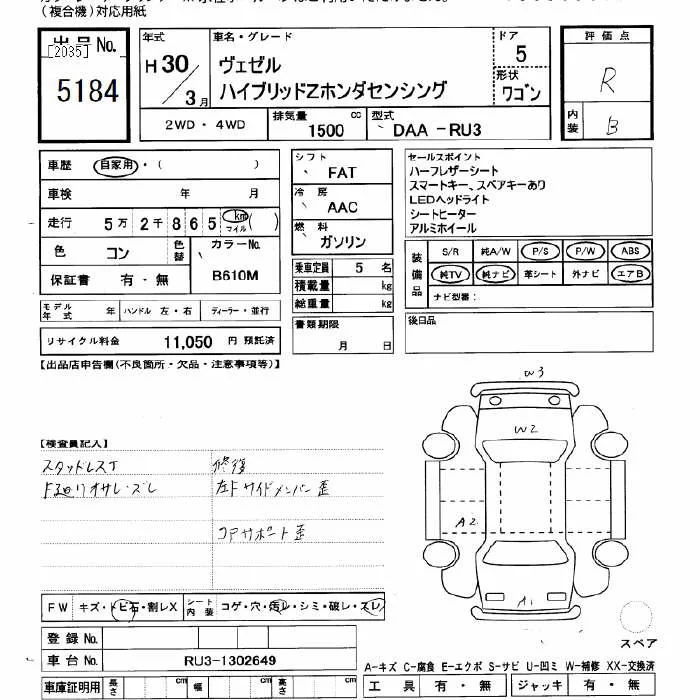 (複合機)対応用紙
出品No. [2035]
5184
年式
H30/3月
車名・グレード
ヴェゼル
ハイブリッドZホンダセンシング
ドア
5
形状
ワゴン
2WD・4WD
排気量 1500 cc
型式 DAA-RU3
評価点
R
内装 B
車歴 自家用・( )
車検 年 月
走行 5万2千865 km マイル ( )
色 コン 色替 カラーNo. B610M
保証書 有・無
モデル年式 年 ハンドル 左・右 ディーラー・並行
リサイクル料金 11,050 円 預託済
シフト FAT
冷房 AAC
燃料 ガソリン
乗車定員 5 名
積載量 kg
総重量 kg
書類期限
月 日
セールスポイント
ハーフレザーシート
スマートキー、スペアキーあり
LEDヘッドライト
シートヒーター
アルミホイール
装備品 S/R 純A/W P/S P/W ABS
純TV 純ナビ 革シート 外ナビ エアB
ナビ型番:
後日品
【出品店申告欄(不良箇所・欠品・注意事項等)】
【検査員記入】
スタッドレスT
下廻りオサレ・ズレ
修復
左Fサイドメンバー歪
コアサポート歪
W3
W2
A2
A1
FW キズ・トビ石・割レX シート内装 コゲ・穴・汚レ・シミ・破レ・スレ
登録No.
車台No. RU3-1302649
車庫証明用 長さ cm 幅 cm 高さ cm
スペア
A-キズ C-腐食 E-エクボ S-サビ U-凹ミ W-補修 XX-交換済
工具 有・無 ジャッキ 有・無